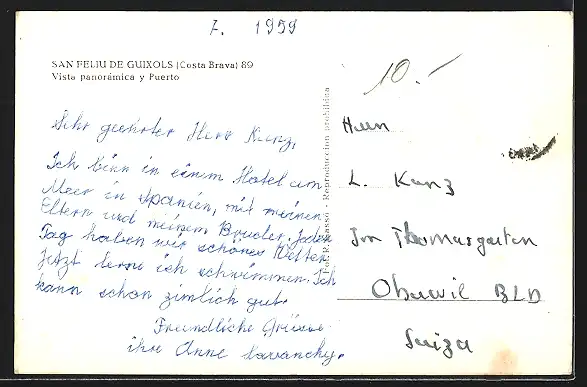 7. 1959
SAN FELIU DE GUIXOLS (Costa Brava) 89
Vista panorámica y Puerto
10.-
Sehr geehrter Herr Kunz,
Ich binn in einem Hotel am
Meer in Spanien, mit meinen
Eltern und meinem Bruder. Jeden
Tag haben wir schönes Wetter.
Jetzt lerne ich schwimmen. Ich
kann schon zimlich gut.
Freundliche Grüsse
ihre Anne Savanchy.
Reproduccion prohibida
Herrn
L. Kunz
Im Thomasgarten
Oberwil BLD
Suiza